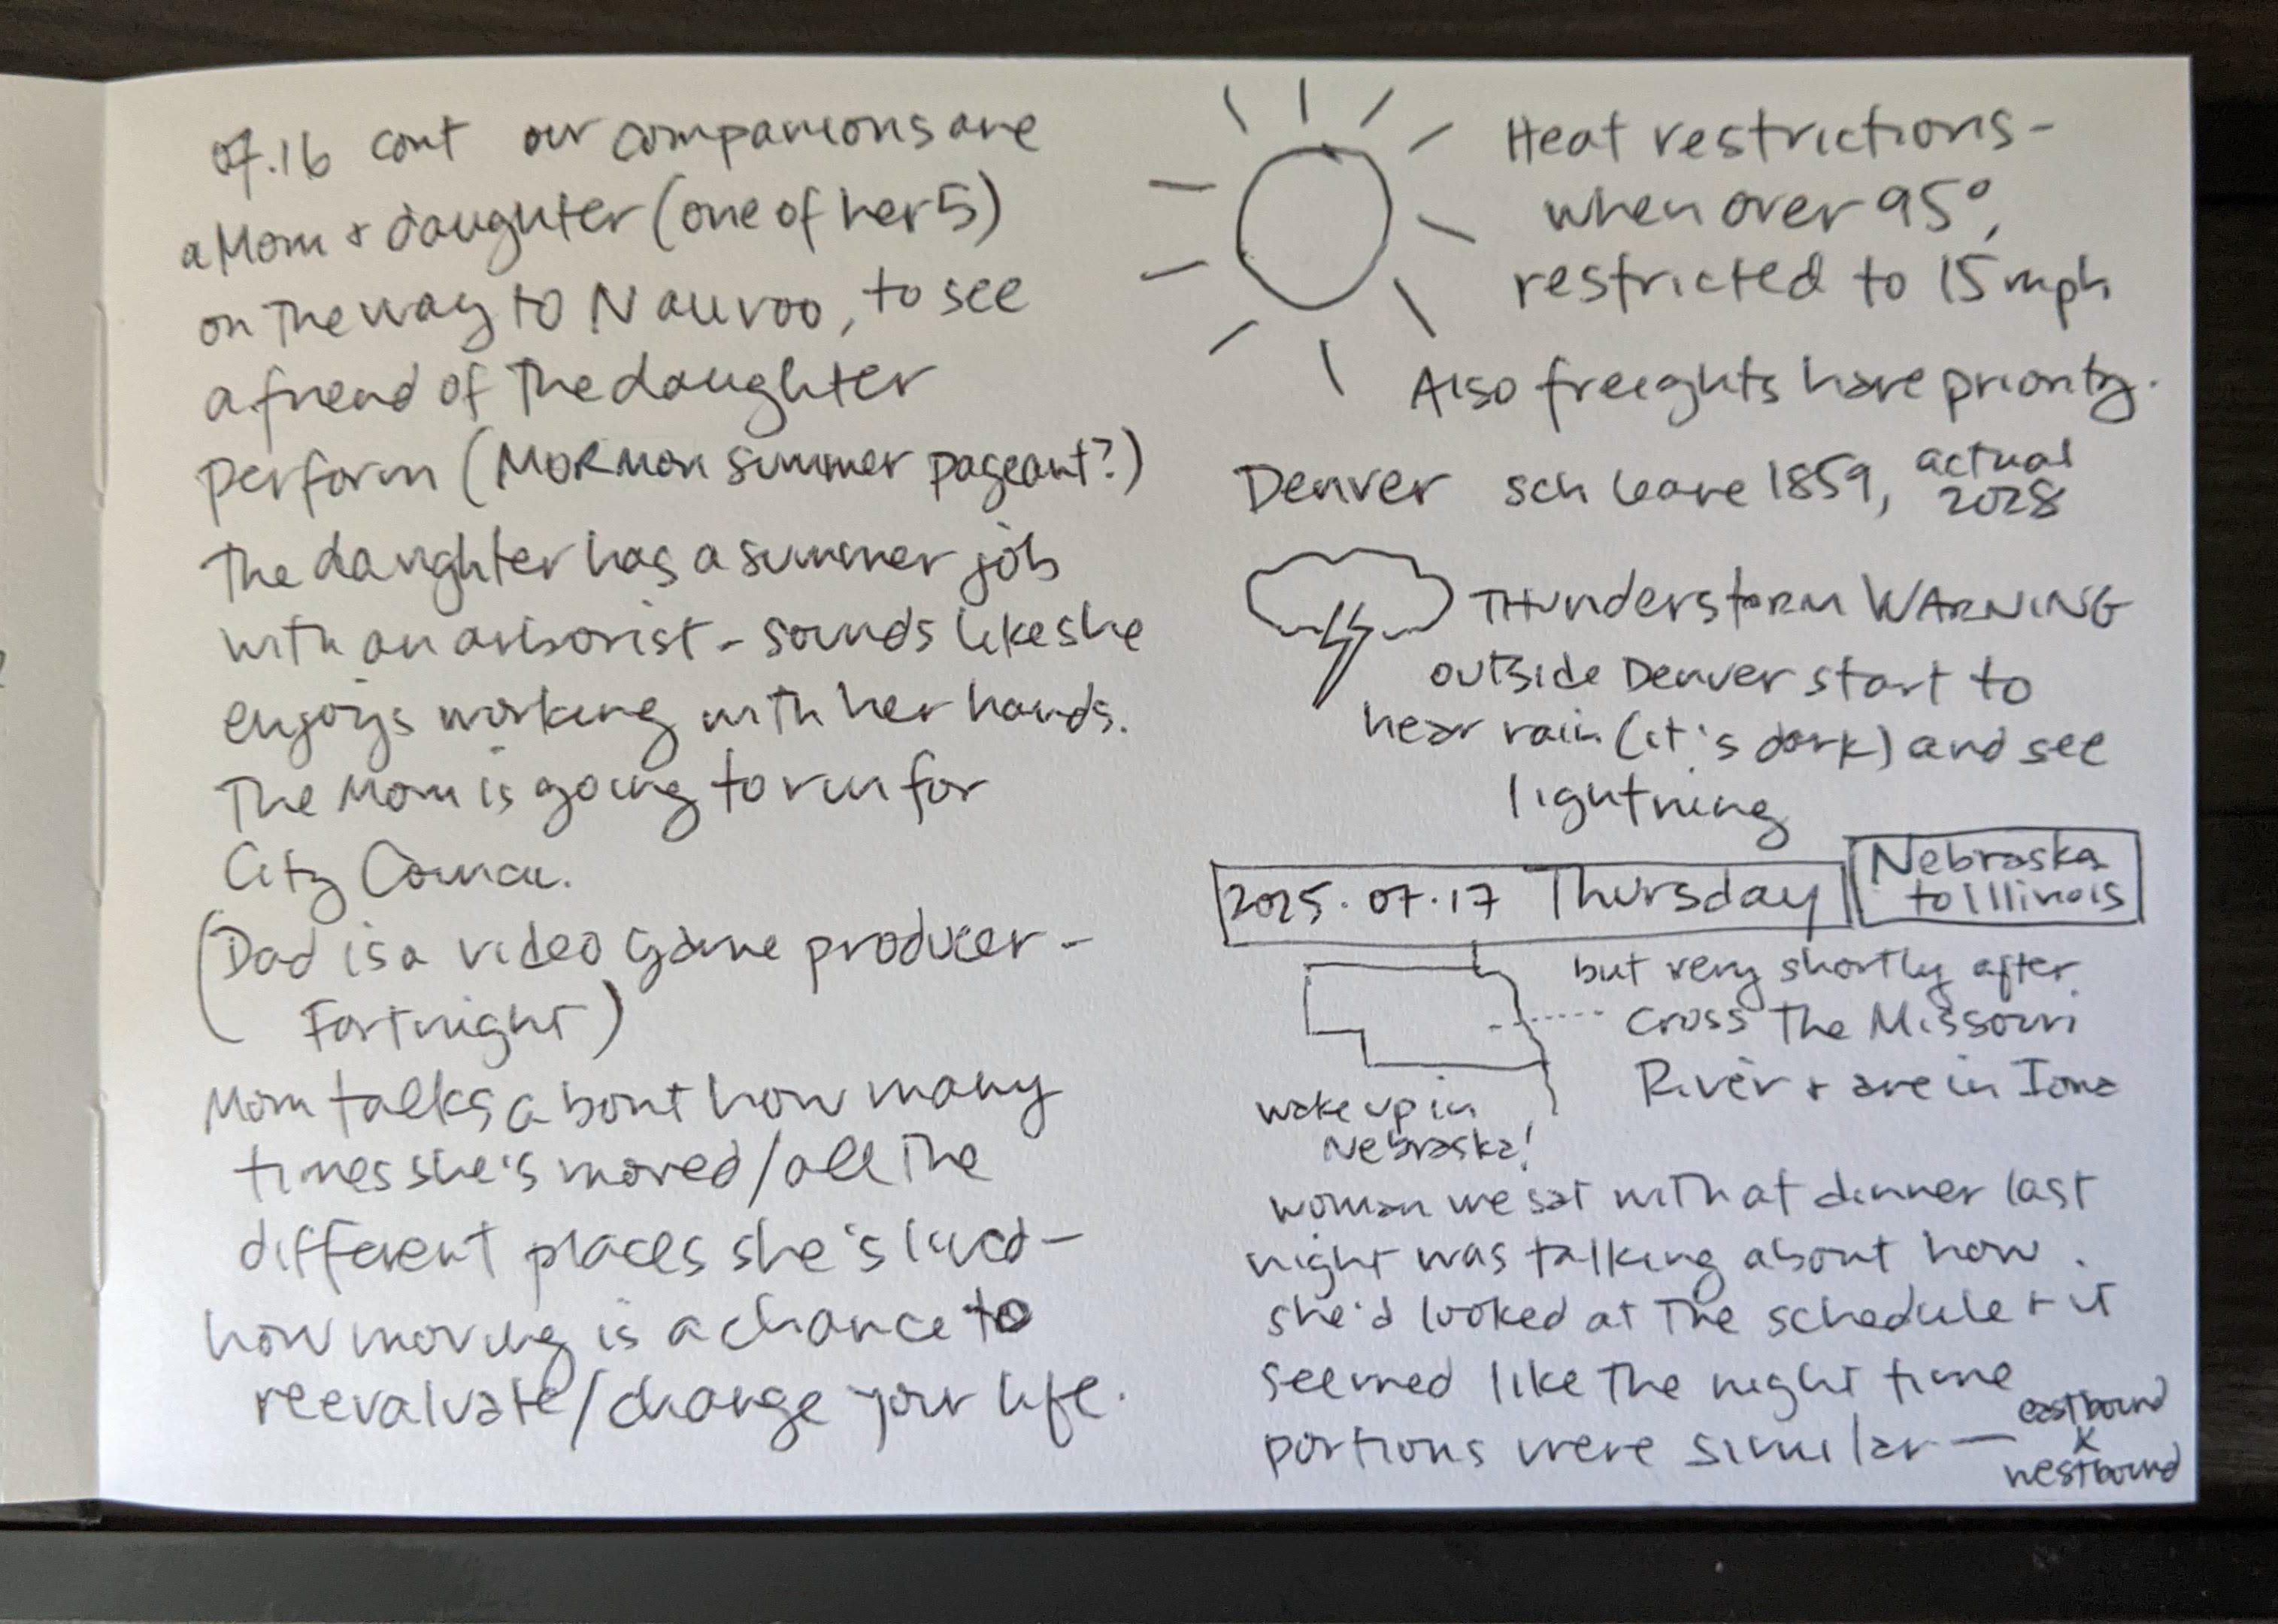 07.16 cont our companions are
a Mom + daughter (one of her 5)
on the way to Nauvoo, to see
a friend of the daughter
perform (MORMON summer pageant?)
The daughter has a summer job
with an arborist - sounds like she
enjoys working with her hands.
The Mom is going to run for
City Council.
(Dad is a video game producer -
Fortnight)
Mom talks about how many
times she's moved/all the
different places she's lived -
how moving is a chance to
reevaluate/change your life.
Heat restrictions -
when over 95°,
restricted to 15 mph
Also freights have priority.
Denver sch leave 1859, actual
2028
THunderstoRM WARNING
outside Denver start to
hear rain (it's dark) and see
lightning
2025.07.17 Thursday
Nebraska
to Illinois
but very shortly after
cross The Missouri
River + are in Iowa
wake up in
Nebraska!
woman we sat with at dinner last
night was talking about how
she'd looked at The schedule + it
seemed like The night time
portions were similar —
eastbound
x
westbound